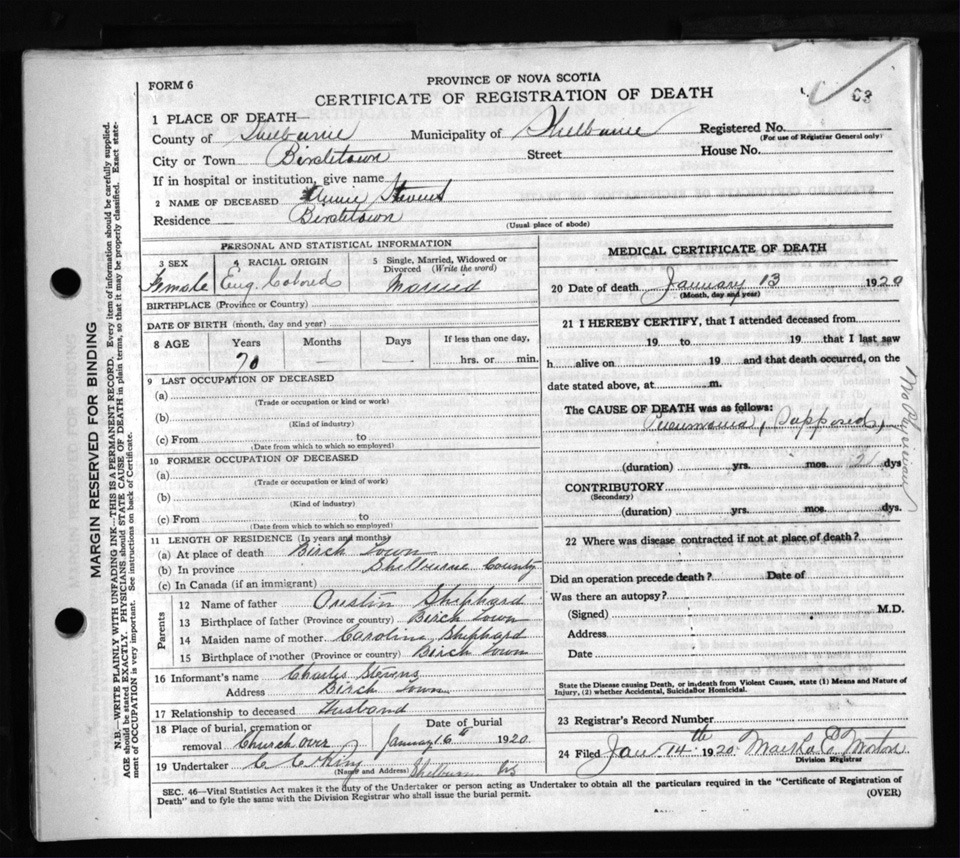 FORM 6
PROVINCE OF NOVA SCOTIA
CERTIFICATE OF REGISTRATION OF DEATH
63
1 PLACE OF DEATH—
County of Shelburne Municipality of Shelburne Registered No.
(For use of Registrar General only)
City or Town Birchtown Street House No.
If in hospital or institution, give name
2 NAME OF DECEASED Annie Stevens
Residence Birchtown
(Usual place of abode)
PERSONAL AND STATISTICAL INFORMATION
3 SEX
Female
4 RACIAL ORIGIN
Eng. Colored
5 Single, Married, Widowed or Divorced (Write the word)
Married
BIRTHPLACE (Province or Country)
DATE OF BIRTH (month, day and year)
8 AGE Years Months Days If less than one day,
70 — — hrs. or min.
9 LAST OCCUPATION OF DECEASED
(a)
(Trade or occupation or kind or work)
(b)
(Kind of industry)
(c) From to
(Date from which to which so employed)
10 FORMER OCCUPATION OF DECEASED
(a)
(Trade or occupation or kind of work)
(b)
(Kind of industry)
(c) From to
(Date from which to which so employed)
11 LENGTH OF RESIDENCE (In years and months)
(a) At place of death Birch Town
(b) In province Shelburne County
(c) In Canada (if an immigrant)
Parents
12 Name of father Shephard
13 Birthplace of father (Province or country) Birch Town
14 Maiden name of mother Caroline Shephard
15 Birthplace of mother (Province or country) Birch Town
16 Informant's name Charles Stevens
Address Birch Town
17 Relationship to deceased Husband
18 Place of burial, cremation or removal Church Over
Date of burial January 16th 1920
19 Undertaker C C King
(Name and Address) Shelburne NS
MEDICAL CERTIFICATE OF DEATH
20 Date of death January 13 1920
(Month, day and year)
21 I HEREBY CERTIFY, that I attended deceased from
19 to 19 that I last saw
h alive on 19 and that death occurred, on the
date stated above, at m.
The CAUSE OF DEATH was as follows:
Pneumonia, Supposed,
No Physician
(duration) yrs. mos. 21 dys
CONTRIBUTORY
(Secondary)
(duration) yrs. mos. dys.
22 Where was disease contracted if not at place of death?
Did an operation precede death? Date of
Was there an autopsy?
(Signed) M.D.
Address
Date
State the Disease causing Death, or in death from Violent Causes, state (1) Means and Nature of
Injury, (2) whether Accidental, Suicidal or Homicidal.
23 Registrar's Record Number
24 Filed Jan. 14th 1920 E Morton
Division Registrar
SEC. 46—Vital Statistics Act makes it the duty of the Undertaker or person acting as Undertaker to obtain all the particulars required in the "Certificate of Registration of
Death" and to fyle the same with the Division Registrar who shall issue the burial permit.
(OVER)
MARGIN RESERVED FOR BINDING
N.B.—WRITE PLAINLY WITH UNFADING INK—THIS IS A PERMANENT RECORD. Every item of information should be carefully supplied.
AGE should be stated EXACTLY. PHYSICIANS should STATE CAUSE OF DEATH in plain terms, so that it may be properly classified. Exact statement
of OCCUPATION is very important. See instructions on back of Certificate.